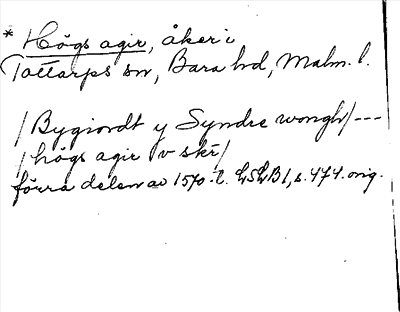 * Högs agir, åker i
Tottarps sn, Bara hd, Malm. l.
/Bygiordt y Syndre wongh/---
/högs agir v skr/
förra delen av 1570-t. LSLB1, s. 474. orig.